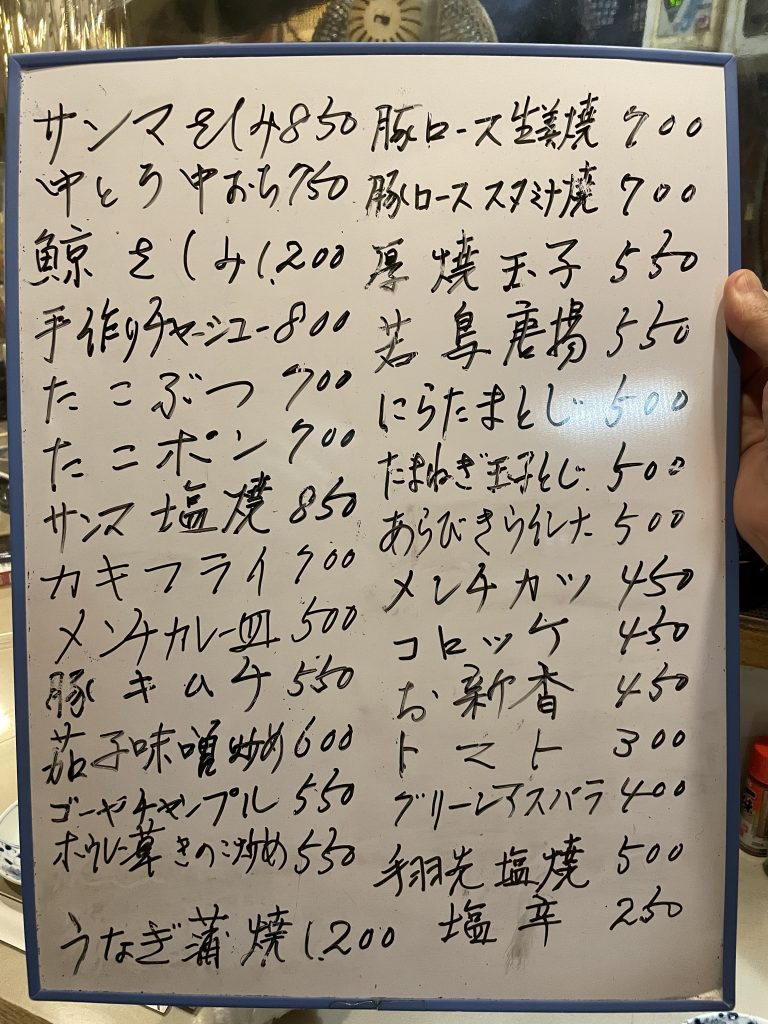 サンマさしみ 850
中とろ 中おち 750
鯨さしみ 1,200
手作りチャーシュー 800
たこぶつ 700
たこポン 700
サンマ 塩焼 850
カキフライ 700
メンチカレー皿 500
豚キムチ 550
茄子味噌炒め 600
ゴーヤチャンプル 550
ホウレン草きのこ炒め 550
うなぎ蒲焼 1,200
豚ロース生姜焼 700
豚ロース スタミナ焼 700
厚焼玉子 550
若鳥唐揚 550
にらたまとじ 500
たまねぎ玉子とじ 500
あらびきウインナ 500
メンチカツ 450
コロッケ 450
お新香 450
トマト 300
グリーンアスパラ 400
手羽先塩焼 500
塩辛 250